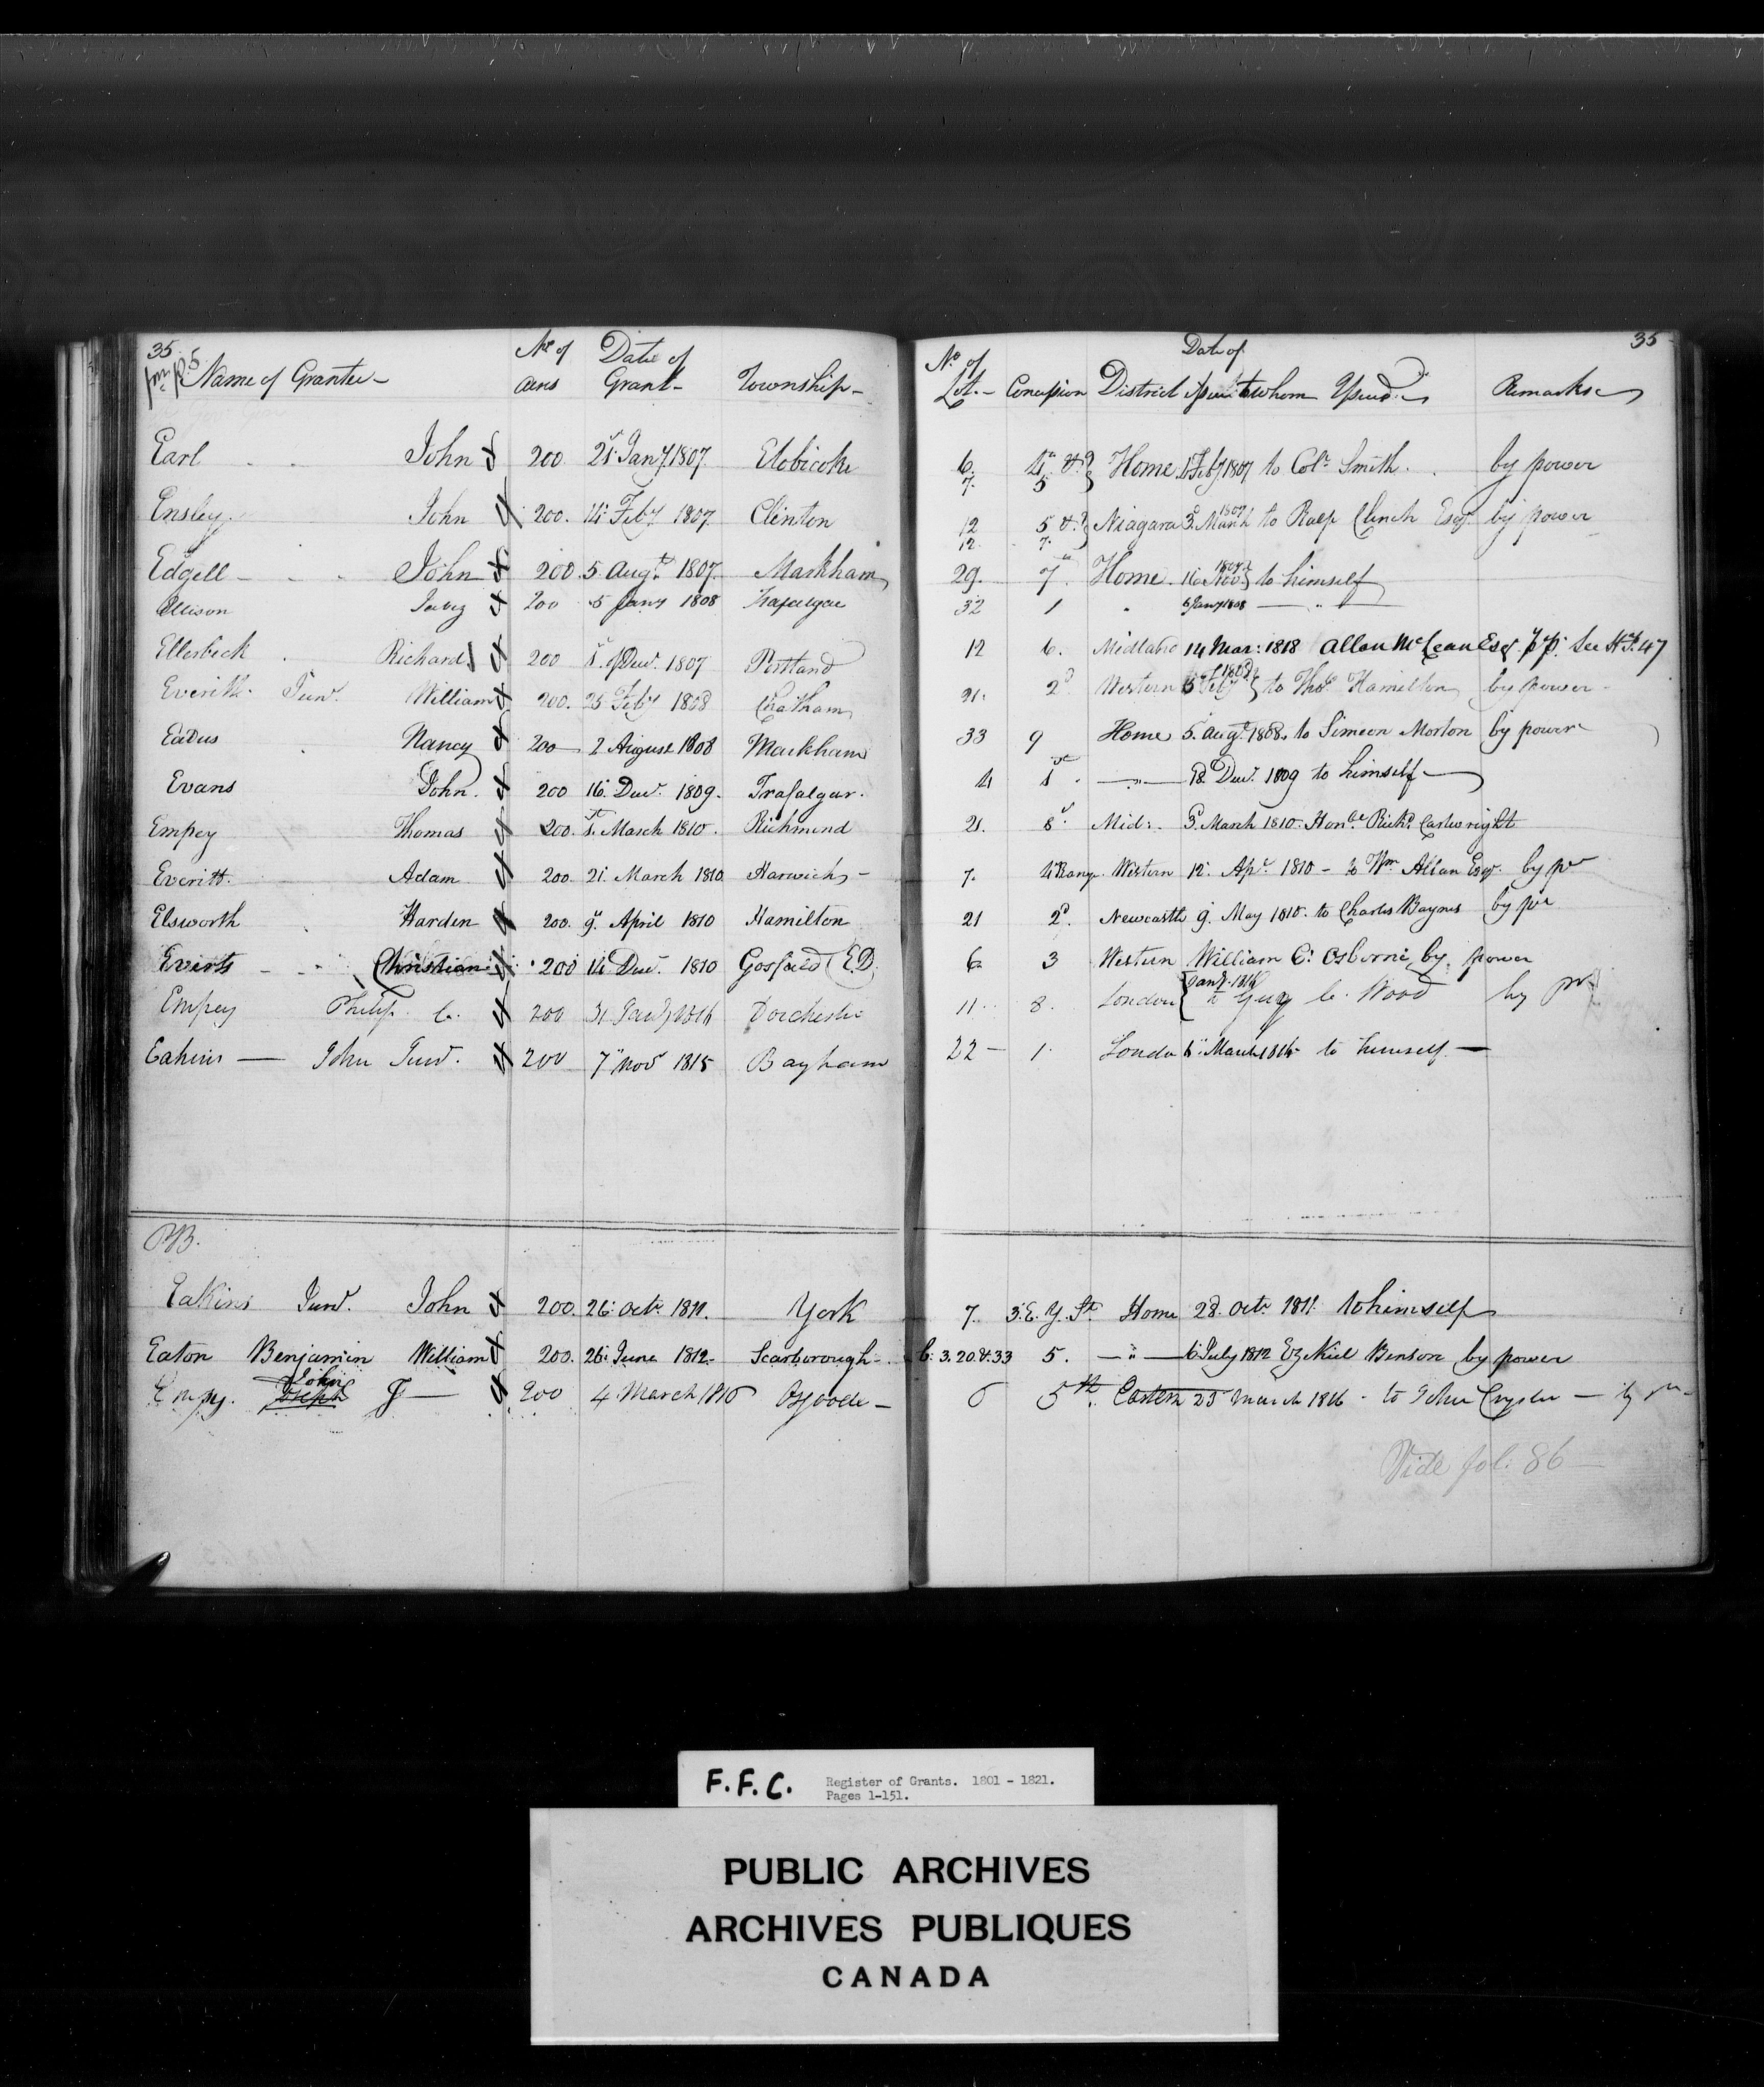 35 35
fm p. 5 Name of Grantee Nº of acres Date of Grant Township Nº of Lot Concession District Date of Issue to whom Issued Remarks
Earl John 200 21 Jany 1807 Etobicoke 6. 7. 4 & 5 Home Feby 1807 to Colº Smith. by power
Ensley John 200. 14 Feby 1807 Clinton 12 12 5 & 7 Niagara 3 March 1807 to Ralp Clench Esqr by power
Edgell John 200. 5 Augt 1807. Markham 29. 7 Home 16 Novr 1807 to himself
Ellison Jabez 200 5 Jany 1808 Trafalgar 32 1 " 6 Jany 1808 — " —
Ellerbeck Richard 200 1. Decr. 1807 Portland 12 6. Midland 14 Mar: 1818 Allan McLean Esqr pr pr. See 47
Everitt Junr. William 200. 25 Feby 1808 Chatham 21. 2d Western Feby 1808 to Thos Hamilton by power
Eadus Nancy 200 2 August 1808 Markham 33 9 Home 5. Augt 1808. to Simeon Morton by power
Evans John. 200 16 Decr. 1809. Trafalgar. 4 1st — " — 18 Decr. 1809 to himself
Empey Thomas 200. 1st March 1810. Richmond 21. 8. Mid: 3 March 1810. Honble Richd Cartwright
Everitt. Adam 200. 21 March 1810 Harwich 7. 4 Range Western 12 Apl 1810 – to Wm Allan Esqr. by pr
Elsworth Harden 200. 9 April 1810 Hamilton 21 2d. Newcastle 9. May 1810. to Charles Baynes by pr
Everts Christian 200 14 Decr. 1810 Gosfield (E.D. 6 3 Western William C: Osborne by power
Empey Philip C. 200 31 Jany 1816 Dorchester 11 8. London Jany 1816 to Guy C. Wood by pr
Eakins — John Junr. 200 7 Novr 1815 Bayham 22 — 1. London March 1816 to himself —
Eakins Junr. John 200. 26 Octr 1811. York 7. 3. E. Y. St. Home 28. Octr 1811. to himself
Eaton Benjamin William 200. 26 June 1812 Scarborough C: 3. 20. & 33 5. — " — 6 July 1812 Ezekiel Benson by power
Empy. John J — 200 4 March 1816 Osgoode 6 5th. Eastern 25 March 1816 – to John Crysler — by pr
Vide fol: 86
F.F.C. Register of Grants. 1801 - 1821.
Pages 1-151.
PUBLIC ARCHIVES
ARCHIVES PUBLIQUES
CANADA